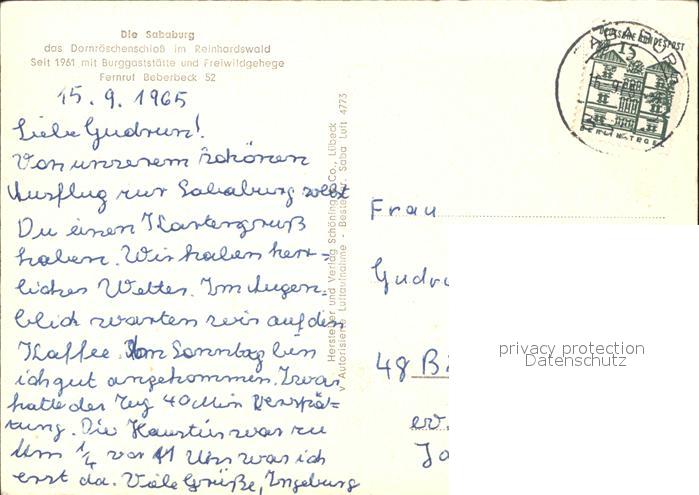 Die Sababurg
das Dornröschenschloß im Reinhardswald
Seit 1961 mit Burggaststätte und Freiwildgehege
Fernruf Beberbeck 52
15.9.1965
Liebe Gudrun!
Von unserem schönen
Ausflug zur Sababurg sollst
Du einen Kartengruß
haben. Wir haben herr-
liches Wetter. Im Augen-
blick warten wir auf den
Kaffee. Am Sonntag bin
ich gut angekommen. Zwar
hatte der Zug 40 Min Verspä-
tung. Die Haustür war zu
Um 1/4 vor 11 Uhr war ich
erst da. Viele Grüße, Ingeburg
Hersteller und Verlag Schöning & Co., Lübeck
Autorisierte Luftaufnahme - Bestellnr. Saba Luft 4773
DEUTSCHE BUNDESPOST
15
BERLIN-TEGEL
SABABURG
Frau
Gudru
48 Bi
privacy protection
Datenschutz